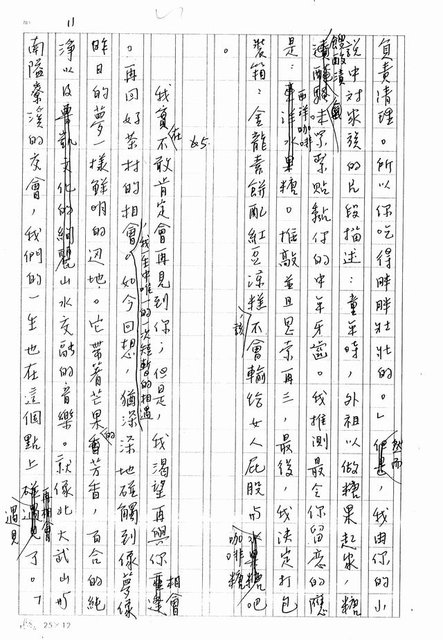 11
負責清理。所以你吃得胖胖壯壯的。」然而，我由你的小
說中對家族的片段描述：童年時，外祖以做糖果起家，糖
緊貼黏你的中年牙齒。我推測最令你留意的應
是：西洋咖啡糖。推敲並且思索再三，最後，我決定打包
裝箱：金龍素餅配紅豆涼糕，該不會輸給女人屁股與咖啡糖吧
。
65
我實在不敢肯定會再見到你；但是，我渴望再與你相會
。再回好茶村的相會，我一生中唯一的一次短暫的相遇。如今回想，猶深深地碰觸到像夢像
昨日的夢一樣鮮明的邊地。它帶著芒果的芳香，百合的純
淨以及魯凱文化的絢麗山水交融的音樂。就像北大武山與
南隘寮溪的交會，我們的一生也在這個點上再相會遇見了。」
25×12